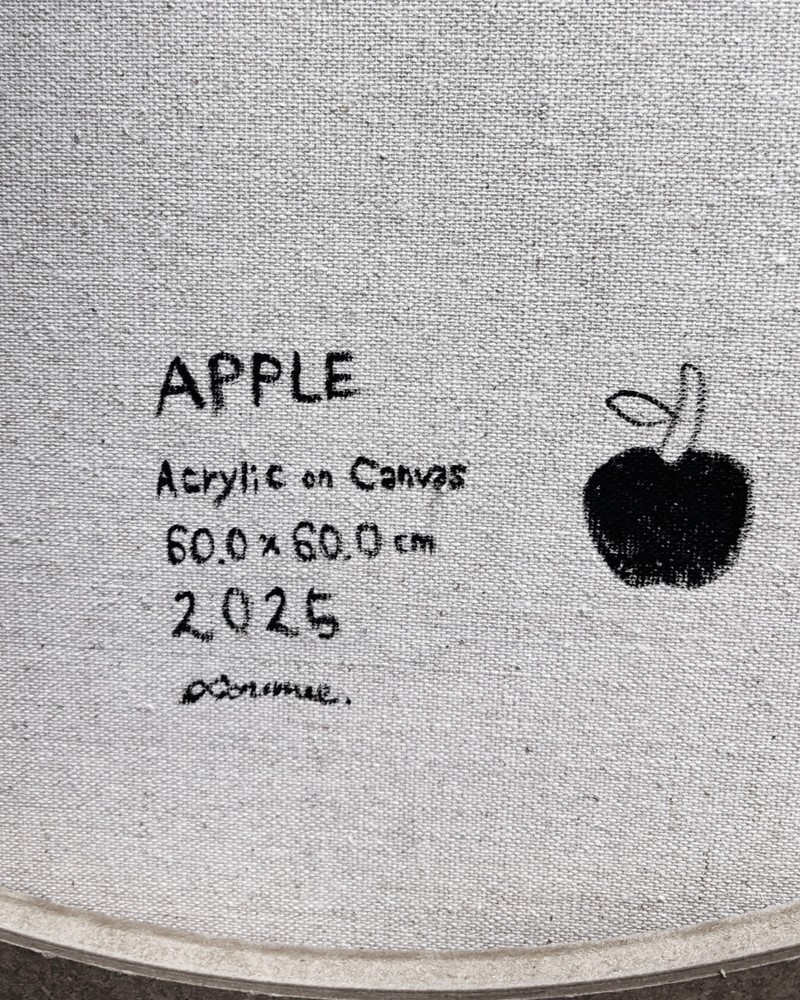 APPLE
Acrylic on Canvas
60.0 x 60.0 cm
2025